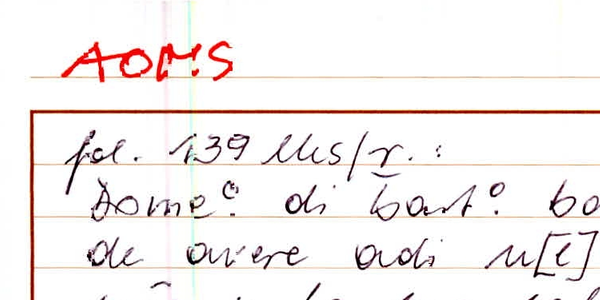 AOMS
fol. 139 lks/r. :
Dome.º di bart.º ba
de avere adi u[l]